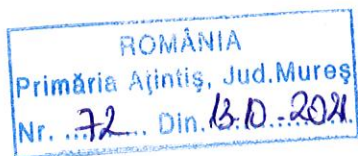 ROMÂNIA
Primăria Ațintiș, Jud.Mureș
Nr. ..72.... Din.13.10...2021.